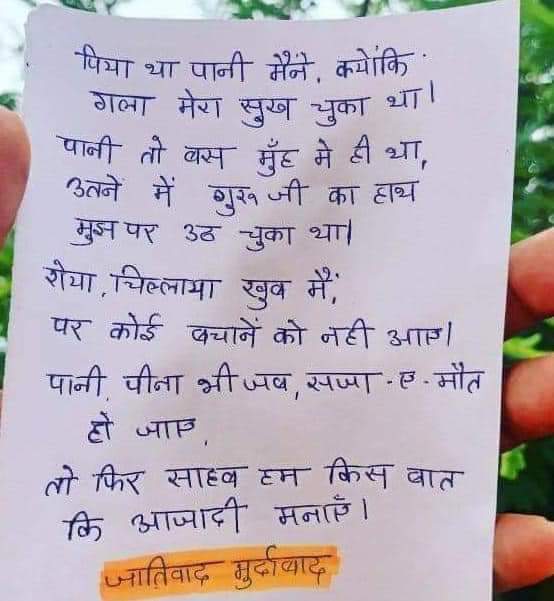 पिया था पानी मैंने, क्योंकि
गला मेरा सुख चुका था।
पानी तो बस मुँह मे ही था,
उतनें में गुरू जी का हाथ
मुझ पर उठ चुका था।
रोया, चिल्लाया खुब मैं,
पर कोई बचानें को नही आए।
पानी, पीना भी जब, सजा-ए-मौत
हो जाए,
तो फिर साहब हम किस बात
कि आजादी मनाएँ।
जातिवाद मुर्दाबाद